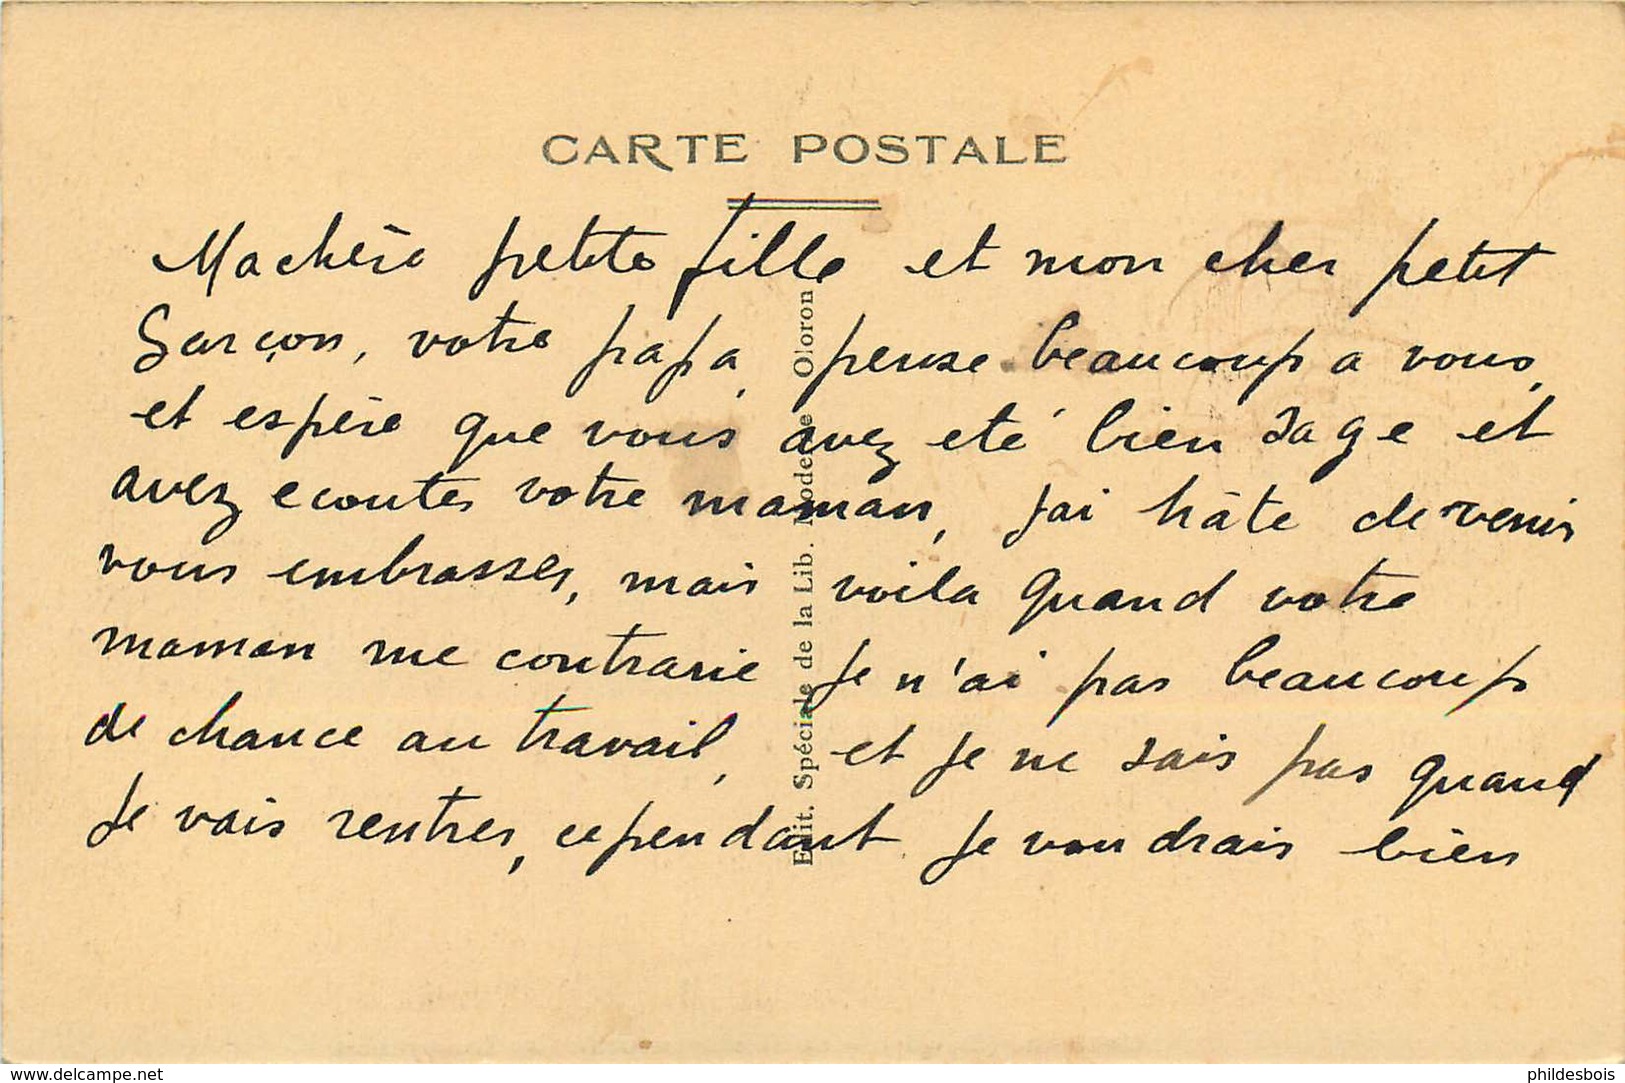 CARTE POSTALE
Ma chère petite fille et mon cher petit
Garçon, votre papa, pense beaucoup a vous,
et espère que vous avez eté bien sage et
avez ecouter votre maman, j'ai hâte de venir
vous embrasser, mais voila quand votre
maman me contrarie je n'ai pas beaucoup
de chance au travail, et je ne sais pas quand
je vais rentrer, cependant je voudrais bien
Edit. Spéciale de la Lib. Moderne Oloron
www.delcampe.net
phildesbois